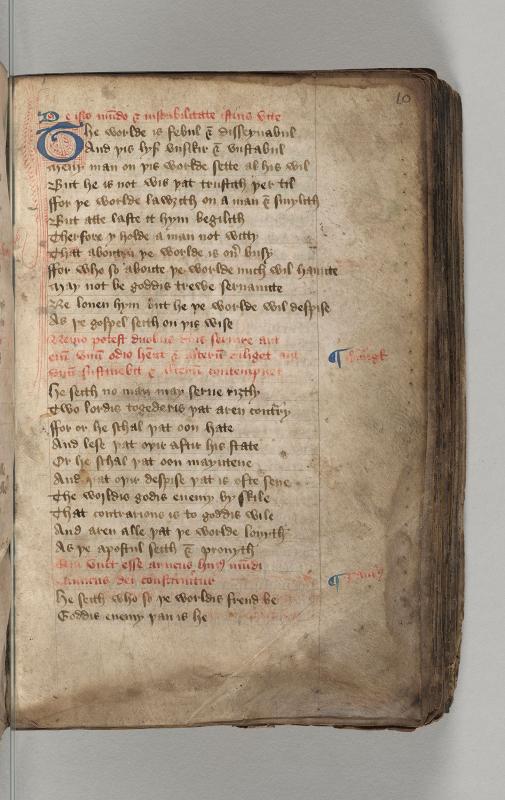 10
De isto mūdo & instabilitate istius vite
The worlde is febul & disseyuabul
And þis lyf vnsikir & vnstabul
Meny man on þis worlde sette al his wil
But he is not wis þat trustith þer til
ffor þe worlde lawȝith on a man & smylith
But atte laste it hym begilith
Therfore y holde a man not witty
That aboute þe worlde is busy
ffor who so aboute þe worlde mich wil haunte
May not be goddis trewe seruaunte
Ne louen hym but he þe worlde wil despise
As þe gospel seith on þis wise
Nemo potest duobus seruire aut
enī vnū odio & alterū diliget aut
vnū sustinebit & alterū contempnet
He seith no man may serue riȝth
Two lordis togederis þat aren contrry
ffor or he schal þat oon hate
And lese þat oþir aftir his state
Or he schal þat oon mayntene
And þat oþir despise þat is ofte sene
The worldis godis enemy by skile
That contrarious is to goddis wile
And aren alle þat þe worlde louyth
As þe apostul seith & prouyth
Qui vult esse amicus huiꝰ mūdi
inimicus dei constituitur
He seith who so þe worldis frend be
Goddis enemy þan is he